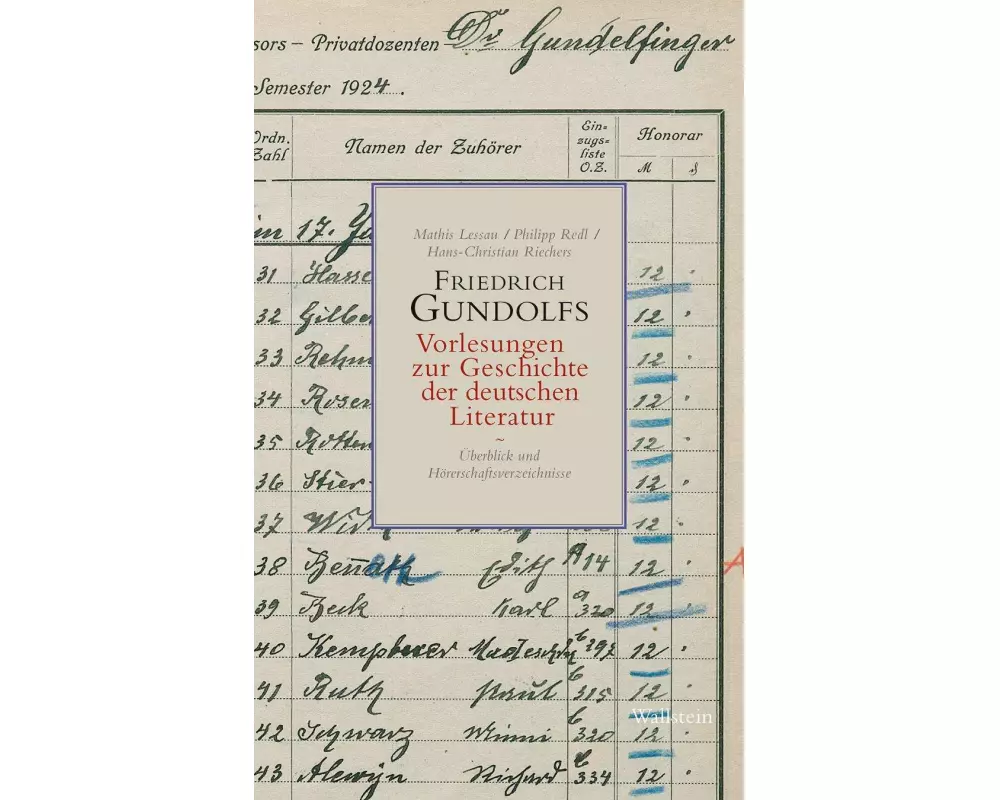 sors – Privatdozenten Dr Gundelfinger
Semester 1924.
Ordn. Zahl
Namen der Zuhörer
Ein=
zugs=
liste
O.Z.
Honorar
M
17. Ja
Mathis Lessau / Philipp Redl /
Hans-Christian Riechers
FRIEDRICH
GUNDOLFS
Vorlesungen
zur Geschichte
der deutschen
Literatur
~
Überblick und
Hörerschaftsverzeichnisse
31 Hasse 12
32 Gilbe 12
33 Rehm 12
34 Rosen 12
35 Rotten 12
36 Stier- 12
37 12
38 Edith A 14 12
39 Beck Karl a 320 12
40 12
41 Ruth Paul 6 315 12
42 Schwarz Winni 6 320 12
43 Alewyn Richard 6 334 12
Wallstein